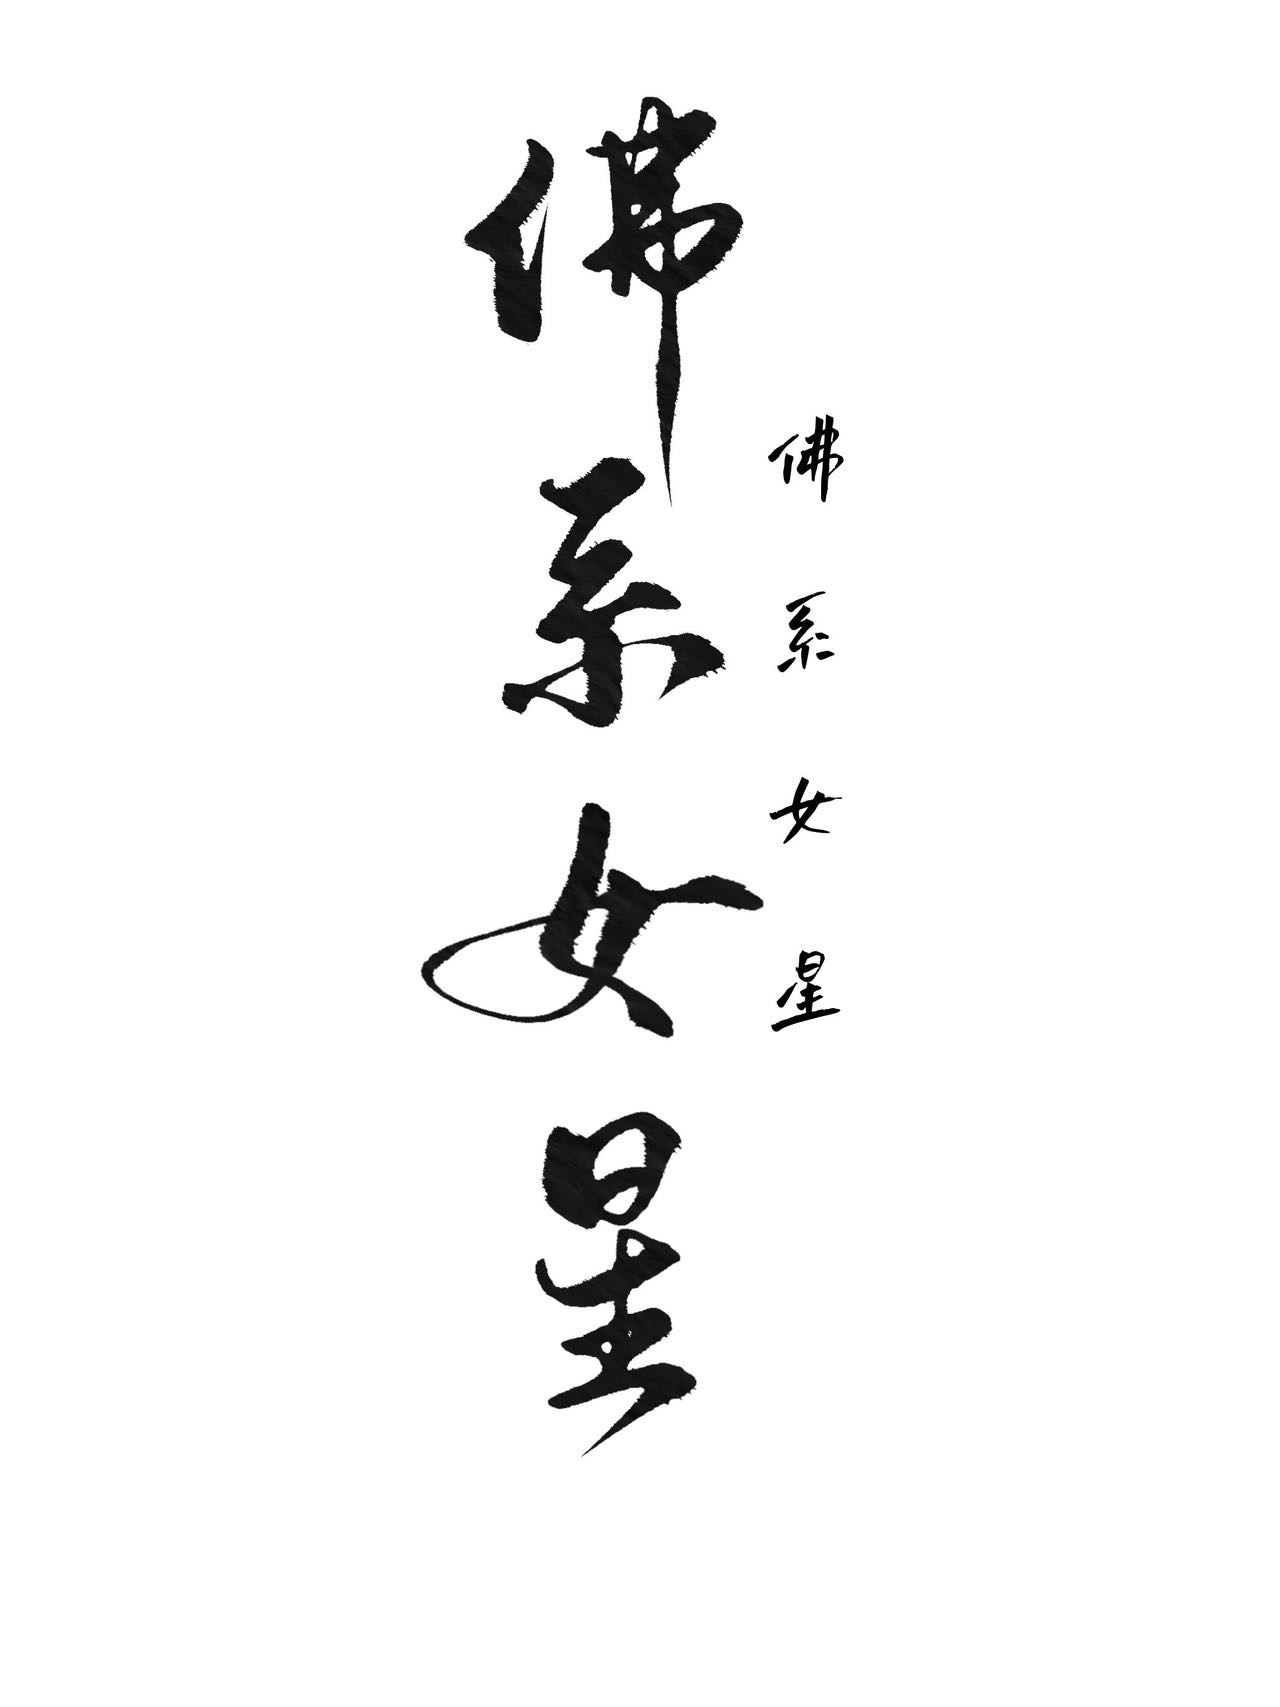 佛系女星
佛系女星